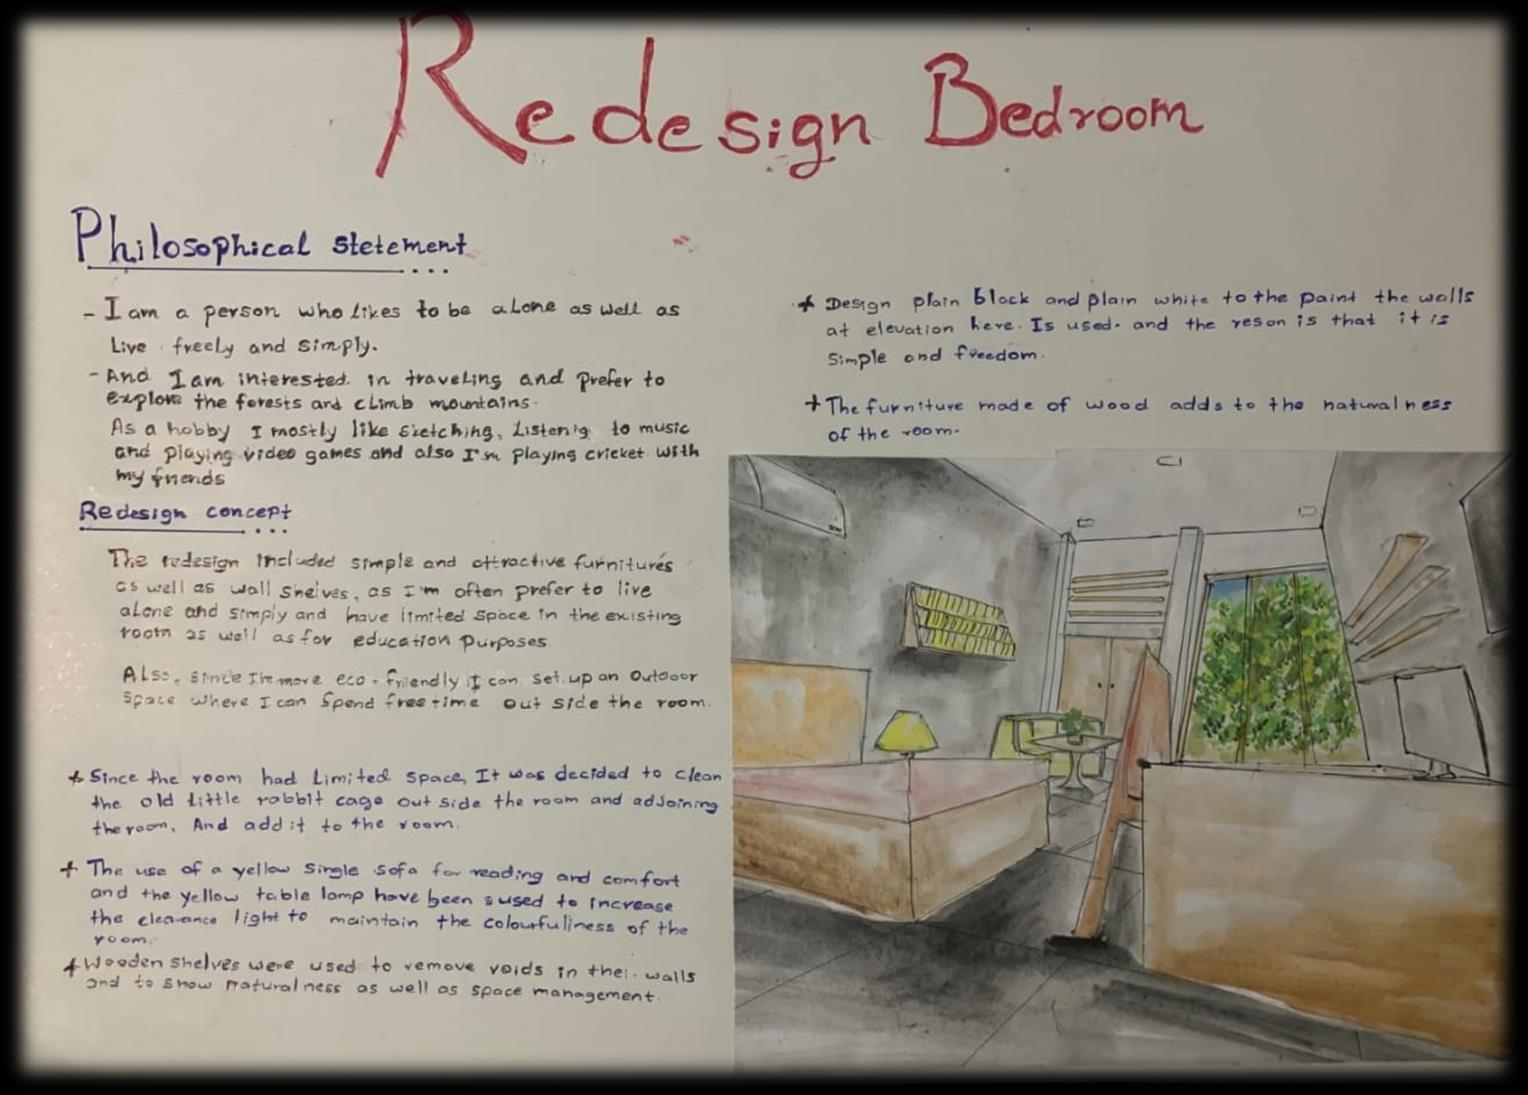 Redesign Bedroom
Philosophical Stetement
- I am a person who likes to be alone as well as
Live freely and simply.
- And I am interested in traveling and prefer to
explore the forests and climb mountains.
As a hobby I mostly like sketching, Listenig to music
and playing video games and also I'm playing cricket with
my friends
Redesign concept
The redesign included simple and attractive furnitures
as well as wall shelves, as I'm often prefer to live
alone and simply and have limited space in the existing
room as well as for education purposes.
Also, since I'm more eco-friendly I can set up an outdoor
space where I can spend free time out side the room.
+ Since the room had limited space, It was decided to clean
the old little rabbit cage out side the room and adjoining
the room, And add it to the room.
+ The use of a yellow single sofa for reading and comfort
and the yellow table lamp have been used to increase
the clearance light to maintain the colourfuliness of the
room.
+ Wooden shelves were used to remove voids in the walls
and to show naturalness as well as space management.
+ Design plain black and plain white to the paint the walls
at elevation here. Is used. and the reson is that it is
simple and freedom.
+ The furniture made of wood adds to the naturalness
of the room.